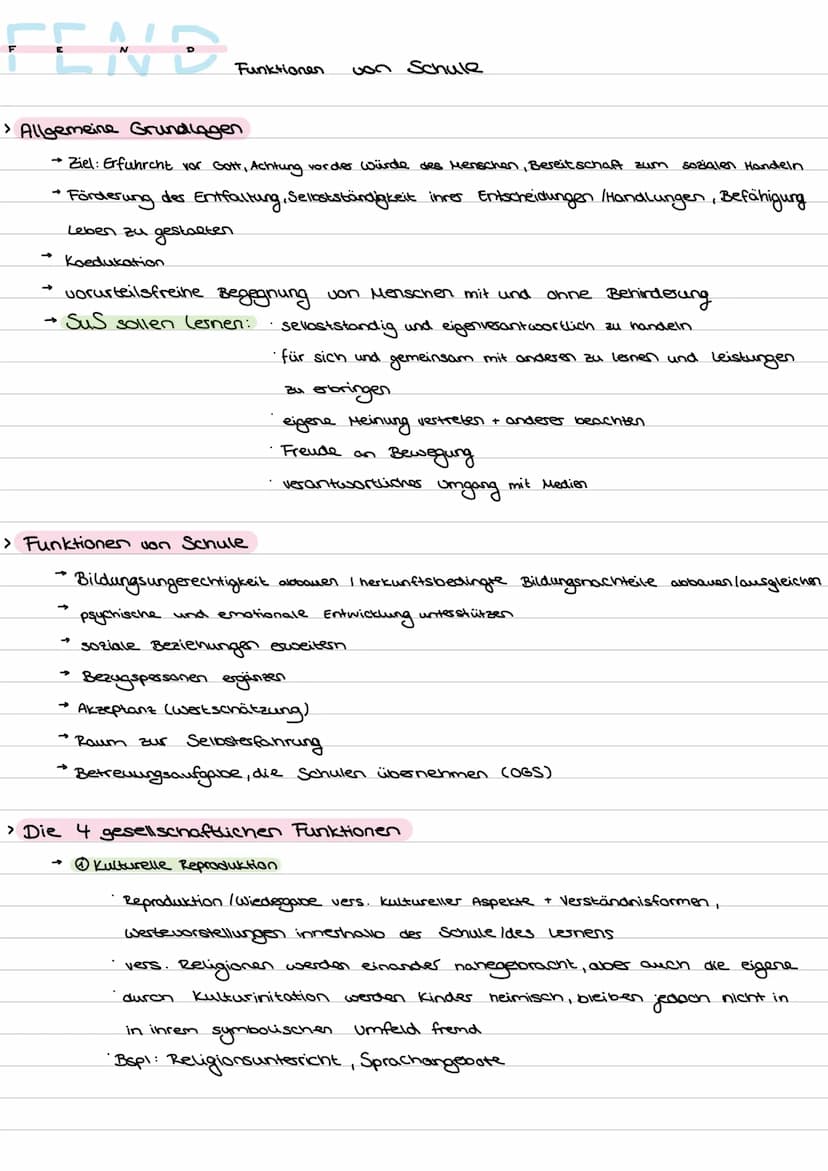 FEND
F E N D
Funktionen von Schule
> Allgemeine Grundlagen
→ Ziel: Erfuhrcht vor Gott, Achtung vor der Würde des Menschen, Bereitschaft zum sozialen Handeln
→ Förderung des Entfaltung, Selbstständigkeit ihrer Entscheidungen /Handlungen, Befähigung
Leben zu gestalten
→ Koedukation
→ vorurteilsfreihe Begegnung von Menschen mit und ohne Behinderung
→ SuS sollen lernen: · selbstständig und eigenverantwortlich zu handeln
· für sich und gemeinsam mit anderen zu lernen und Leistungen
zu erbringen
· eigene Meinung vertreten + anderer beachten
· Freude an Bewegung
· verantwortlicher Umgang mit Medien
> Funktionen von Schule
→ Bildungsungerechtigkeit abbauen / herkunftsbedingte Bildungsnachteile abbauen/ausgleichen
→ psychische und emotionale Entwicklung unterstützen
→ soziale Beziehungen erweitern
→ Bezugspersonen ergänzen
→ Akzeptanz (Wertschätzung)
→ Raum zur Selbsterfahrung
→ Betreuungsaufgabe, die Schulen übernehmen (OGS)
> Die 4 gesellschaftlichen Funktionen
→ ① Kulturelle Reproduktion
· Reproduktion /Wiedergabe vers. kultureller Aspekte + Verständnisformen,
Wertevorstellungen innerhalb der Schule /des Lernens
· vers. Religionen werden einander nahegebracht, aber auch die eigene
· durch Kulturinitation werden Kinder heimisch, bleiben jedoch nicht in
in ihrem symbolischen Umfeld fremd
· Bspl: Religionsunterricht, Sprachangebote